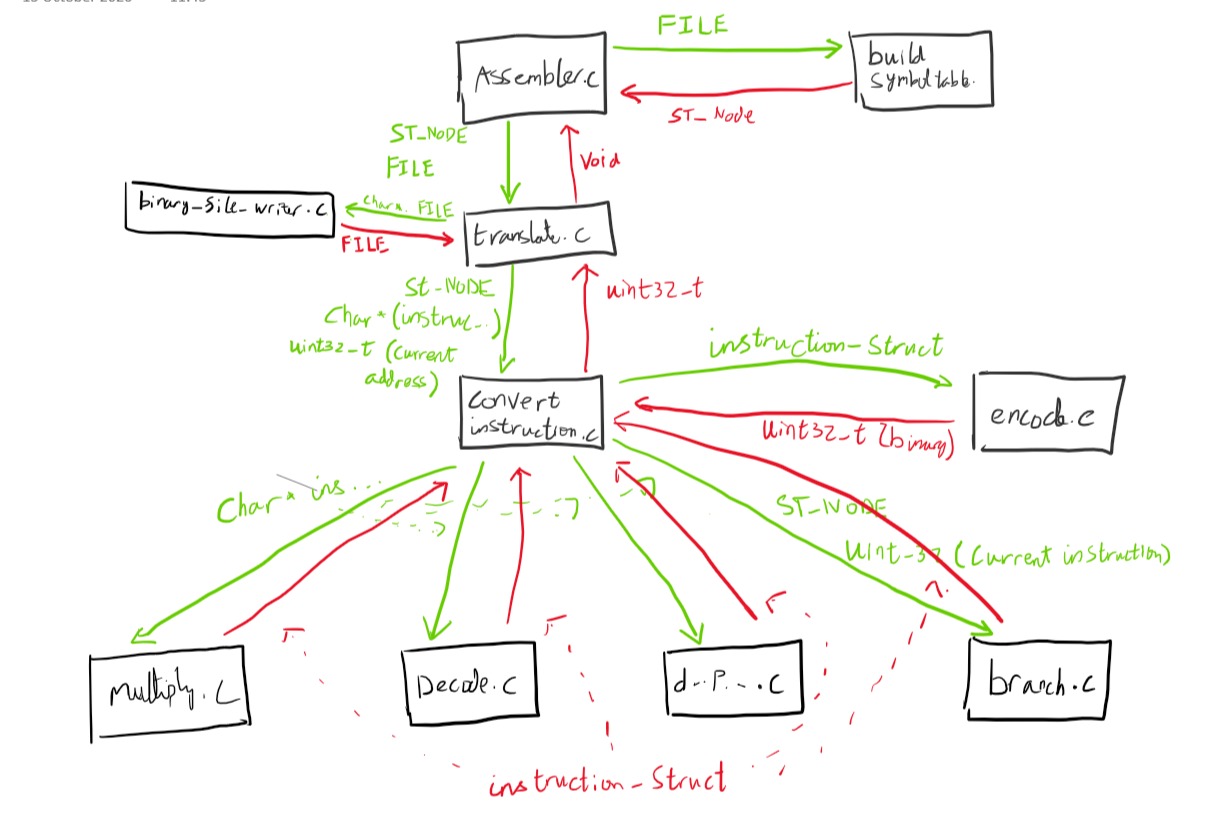 FILE
Assembler.c
build
symbol table.
ST_Node
ST_NODE
FILE
Void
binary_file_writer.c
Char*. FILE
FILE
translate.c
St-NODE
Char* (instruc...)
uint32-t (current
address)
uint32-t
instruction-Struct
Convert
instruction.c
encode.c
Uint32-t (binary)
Char* ins...
ST_NODE
Uint-32 (Current instruction)
Multiply.c
Decode.c
d..P...c
branch.c
instruction-Struct